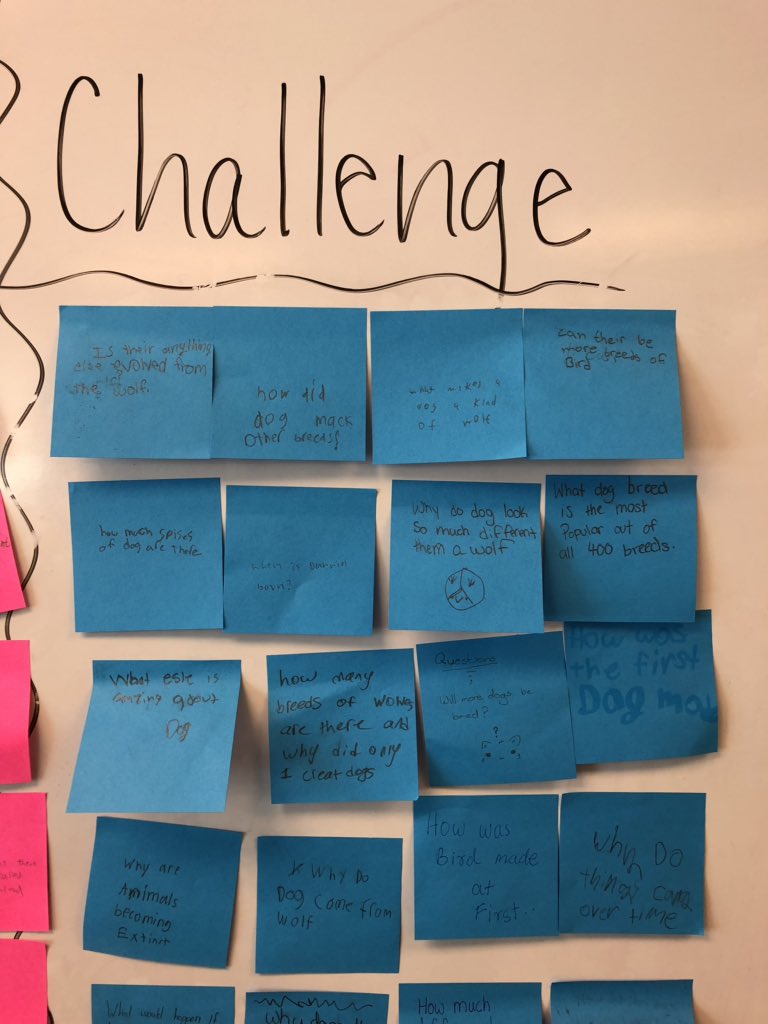 Challenge
Is their anything
else evolved from
the wolf.
how did
dog mack
other breeds?
what makes a
dog a kind
of wolf
can their be
more breeds of
Bird
how much spises
of dog are there
when is Darwin
born?
Why do dog look
So much different
them a wolf
What dog breed
is the most
Popular out of
all 400 breeds.
What esle is
amzing about
Dog
how many
breeds of wolves
are there and
why did only
1 creat dogs
Questions
?
Will more dogs be
bred?
?
How was
the first
Dog
Why are
Animals
becoming
Extinct
Why Do
Dog come from
wolf
How was
Bird made
at
First..
why Do
things
over time
What would happen if
why
How much